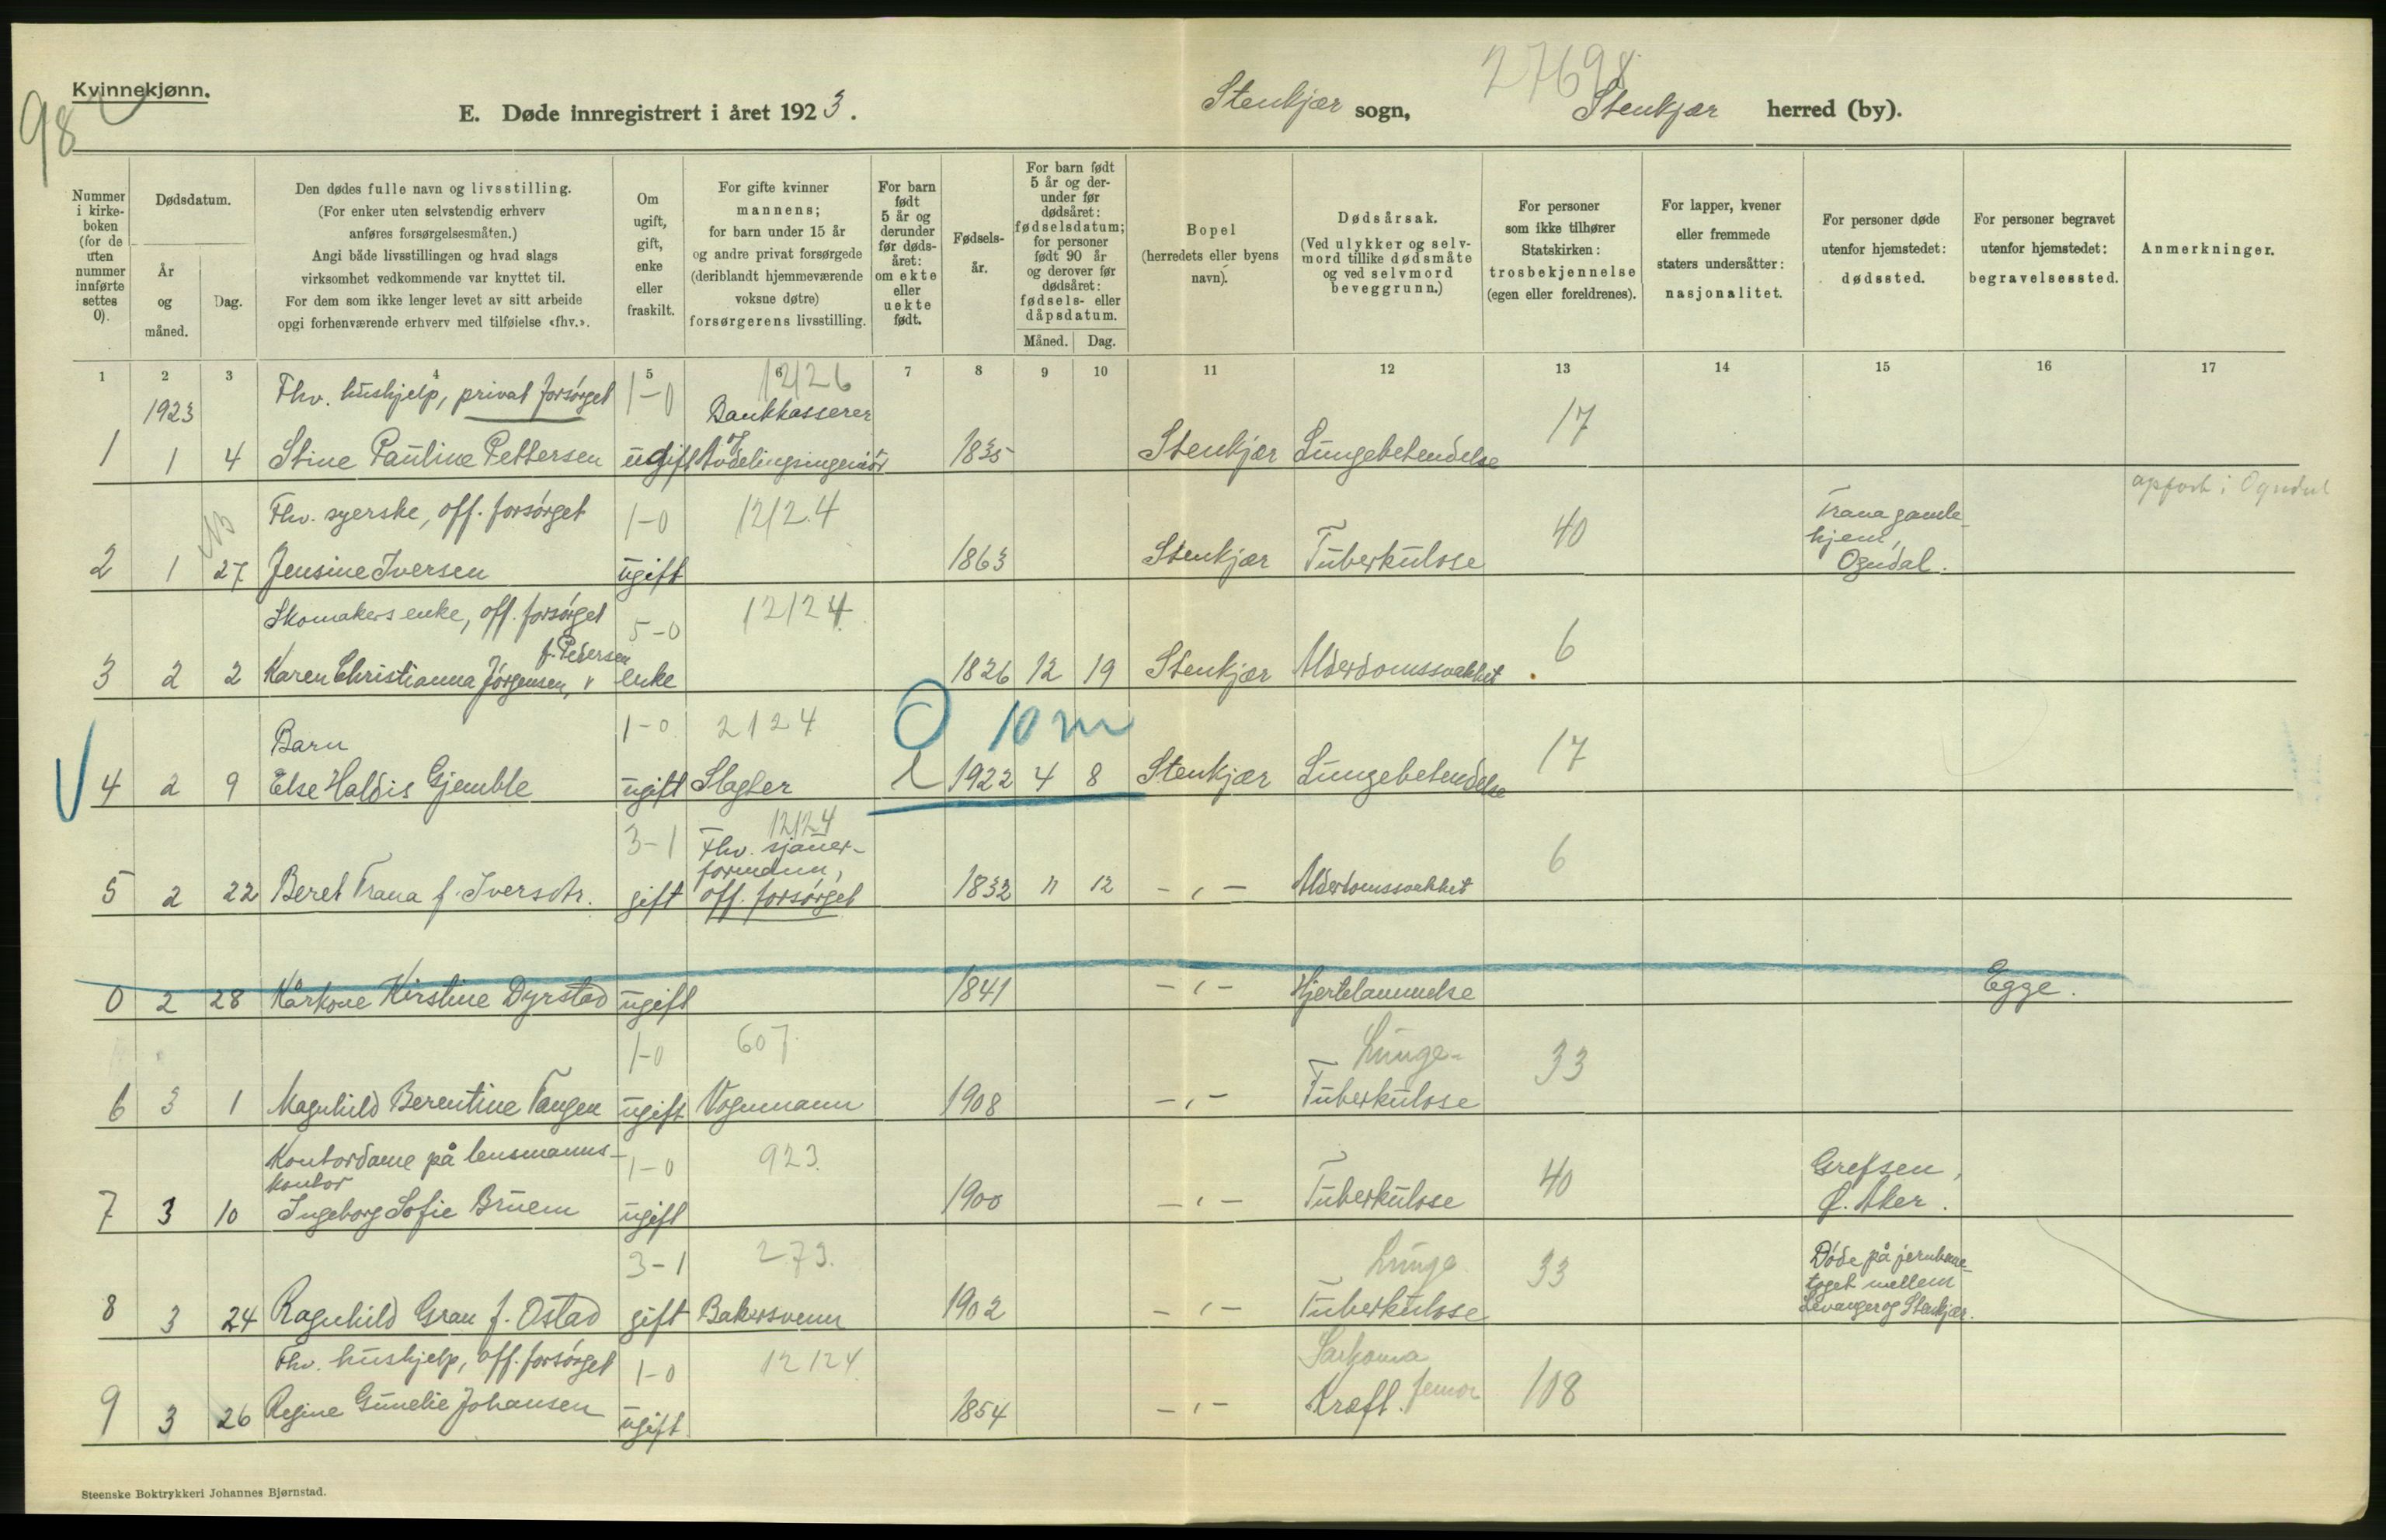 Kvinnekjønn.
98
27698
E. Døde innregistrert i året 1923.
Stenkjær sogn, Stenkjær herred (by).
Nummer i kirke-boken (for de uten nummer innførte settes 0).
Dødsdatum.
År og måned.
Dag.
Den dødes fulle navn og livsstilling.
(For enker uten selvstendig erhverv
anføres forsørgelsesmåten.)
Angi både livsstillingen og hvad slags
virksomhet vedkommende var knyttet til.
For dem som ikke lenger levet av sitt arbeide
opgi forhenværende erhverv med tilføielse «fhv.».
Om ugift, gift, enke eller fraskilt.
For gifte kvinner
mannens;
for barn under 15 år
og andre privat forsørgede
(deriblandt hjemmeværende
voksne døtre)
forsørgerens livsstilling.
For barn født 5 år og derunder før døds-året: om ekte eller uekte født.
Fødsels-år.
For barn født 5 år og der-under før dødsåret: fødselsdatum; for personer født 90 år og derover før dødsåret: fødsels- eller dåpsdatum.
Måned. Dag.
Bopel
(herredets eller byens
navn).
Dødsårsak.
(Ved ulykker og selv-
mord tillike dødsmåte
og ved selvmord
beveggrunn.)
For personer
som ikke tilhører
Statskirken:
trosbekjennelse
(egen eller foreldrenes).
For lapper, kvener
eller fremmede
staters undersåtter:
nasjonalitet.
For personer døde
utenfor hjemstedet:
dødssted.
For personer begravet
utenfor hjemstedet:
begravelsessted.
Anmerkninger.
1 2 3 4 5 6 7 8 9 10 11 12 13 14 15 16 17
1923 Fhv. hushjelp, privat forsørget 1-0 12126 Bankkasserer 17
1 1 4 Stine Pauline Pettersen ugift Avdelingsingeniør 1835 Stenkjær Lungebetendelse
Fhv. syerske, off. forsørget 1-0 12124 40 Trana gamle-
hjem,
2 1 27 Jensine Iversen ugift 1863 Stenkjær Tuberkulose Ogndal.
opført i Ogndal
Skomakers enke, off. forsørget 5-0 12124 6
f. Pedersen
3 2 2 Karen Christianna Jørgensen, enke 1826 12 19 Stenkjær Alderdomssvakhet
Barn 1-0 2124 O 10 m 17
4 2 9 Else Haldis Gjemble ugift Slagter 1922 4 8 Stenkjær Lungebetendelse
3-1 12124 Fhv. sjauer-
formann, 6
5 2 22 Beret Trana f. Iversdtr. gift off. forsørget 1832 11 12 -"- Alderdomssvakhet
0 2 28 Kårkone Kirstine Dyrstad ugift 1841 -"- Hjertelammelse Egge.
1-0 607 Lunge- 33
6 3 1 Magnhild Berentine Tangen ugift Vognmann 1908 -"- Tuberkulose
Kontordame på lensmanns- 1-0 923 40 Grefsen,
kontor
7 3 10 Ingeborg Sofie Bruem ugift 1900 -"- Tuberkulose Ø. Aker.
3-1 273. Lunge 33 Døde på jernbane-
toget mellem
8 3 24 Ragnhild Gran f. Ostad gift Bakersvenn 1902 -"- Tuberkulose Levanger og Stenkjær.
Fhv. hushjelp, off. forsørget 1-0 12124 Sarkoma
9 3 26 Regine Gunelie Johansen ugift 1854 -"- Kreft. femor 108
Steenske Boktrykkeri Johannes Bjørnstad.